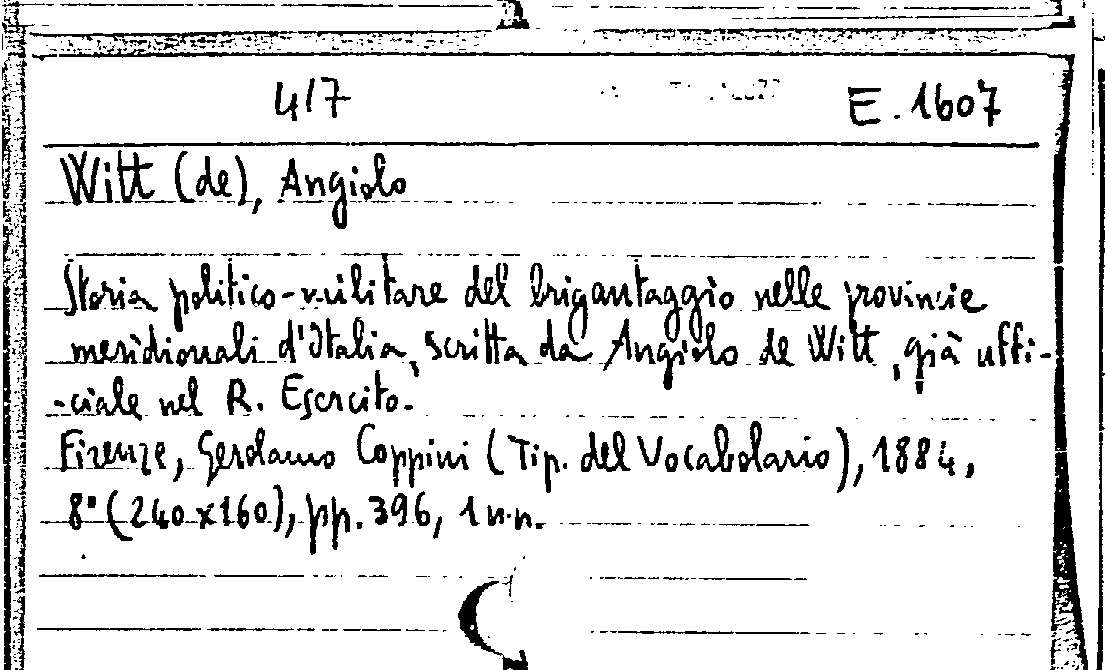 4/7 E. 1607
Witt (de), Angiolo
Storia politico-militare del brigantaggio nelle provincie
meridionali d'Italia, scritta da Angiolo de Witt, già uffi-
-ciale nel R. Esercito.
Firenze, Gerolamo Coppini (Tip. del Vocabolario), 1884,
8° (240x160), pp. 396, 1 n.n.